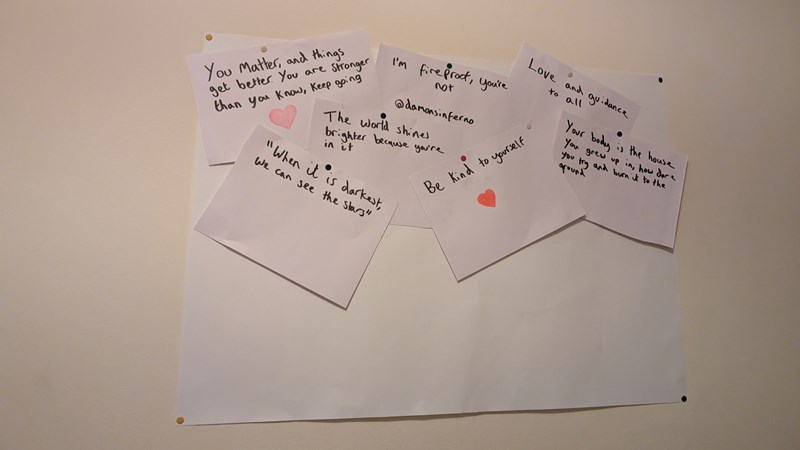 You Matter, and things
get better. You are stronger
than you know, keep going
I'm fireproof, you're
not
@damonsinferno
Love and guidance
to all
The world shines
brighter because you're
in it
"When it is darkest,
we can see the stars"
Be kind to yourself
Your body is the house
you grew up in, how dare
you try and burn it to the
ground